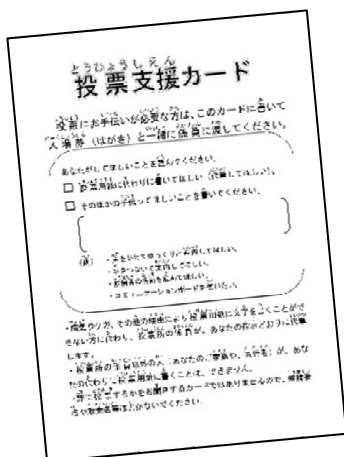 とうひょうしえん
投票支援カード
投票にお手伝いが必要な方は、このカードに書いて
入場券（はがき）と一緒に係員に渡してください。
あなたがしてほしいことを選んでください。
□ 投票用紙に代わりに書いてほしい（代筆してほしい）。
□ そのほかの手伝ってほしいことを書いてください。
（例）
・コミュニケーションボードを使いたい。
・病気やケガ、その他の理由により投票用紙に文字を書くことがで
きない方に代わり、投票所の係員が、あなたの指示どおりに代筆
します。
・投票所の係員以外の人（あなたのご家族や、同行者）が、あな
たの代わりに投票用紙に書くことは、できません。
・誰に投票するかをお聞きするカードではありませんので、候補者
名や政党名等は書かないでください。